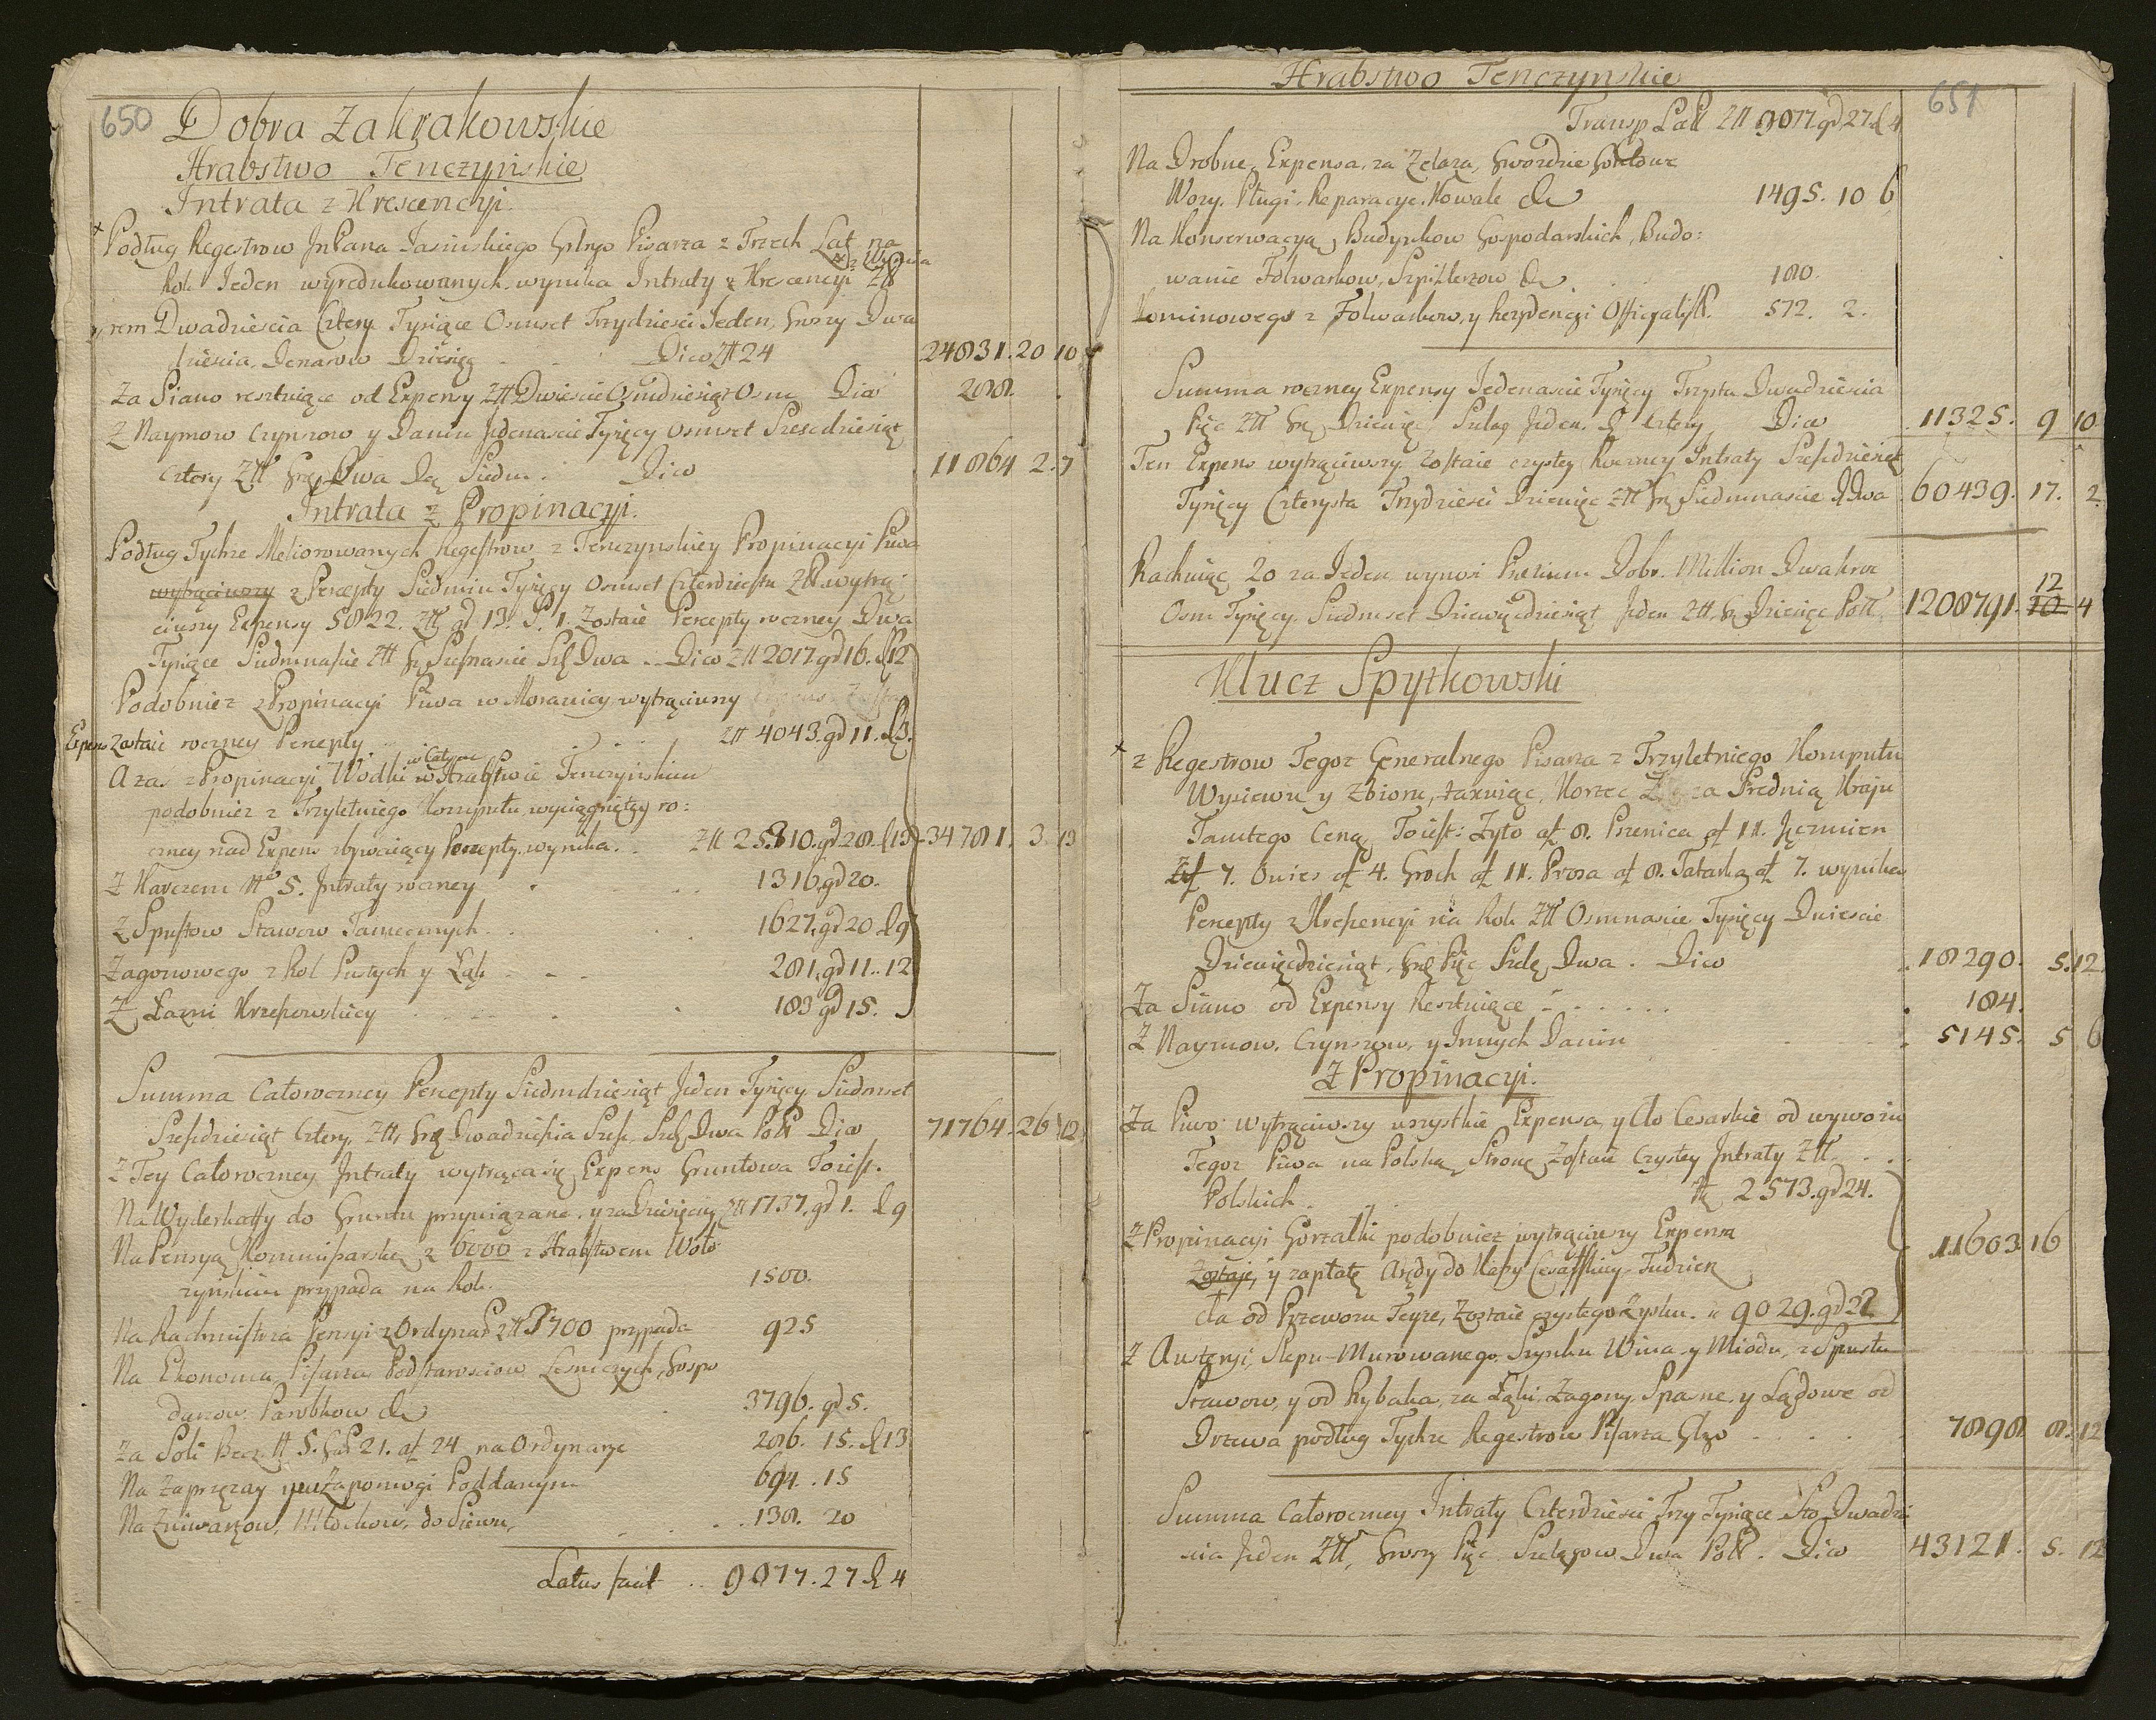 650
Dobra Zakrakowskie
Hrabstwo Tenczyńskie
Intrata z Krescencyi.
Podług Regestrow JnPana Jasinskiego Gnlngo Pisarza z Trzech Lat na
Rok Jeden wyredukowanych wynika Intraty z Krescencyi Zł
Dwadziescia Cztery Tysiące Osmset Trzydziesci Jeden, Groszy Dwa
dziescia Denarow Dziesięć Dico Zł 24 24831. 20 10
Za Siano resztuiące od Expensy Złł Dwiescie Osmdziesiąt Osm Dico 288.
Z Naymow Czynszow y Danin Jedenascie Tysięcy Osmset Szescdziesiąt
Cztery Złł Gr Dwa Siedm Dico 11864 2. 7
Intrata z Propinacyi.
Podług Tychze Meliorowanych Regestrow z Tenczynskiey Propinacyi Piwa
wytrąciwszy z Percepty Siedmiu Tysięcy Osmset Czterdziestu Złł wytrą
ciwszy Expensy 5822. Złł gd 13. S. 1. Zostaie Percepty roczney Dwa
Tysiące Siedmnascie Złł Gr Szesnascie Szl Dwa .. Dico Złł 2017. gd 16. d 12
Podobniez z Propinacyi Piwa w Morawicy wytrąciwszy
Expens Zostaie roczney Percepty Złł 4043. gd 11. d 3.
w Całym
A zas z Propinacyi Wodki w Hrabstwie Tenczyńskim
podobniez z Trzyletniego Komputu wyciągniętey ro:
czney nad Expens zbywaiący Percepty wynika. Złł 25310. gd 28. d 13 34781. 3. 13
Z Karczem N° 5. Intraty roczney 1316. gd 20.
Z Spustow Stawow Tamecznych 1627. gd 20 d 9
Zagonowego z Rol Pustych y Łąk 281. gd 11. 12
Z Łazni Krzeszowskiey 183 gd 15.
Summa Całoroczney Percepty Siedmdziesiąt Jeden Tysięcy Siedmset
Szescdziesiąt Cztery, Złł, Gr Dwadziescia Szesc, Szl Dwa Poł Dico 71764. 26 12
Z Tey Całoroczney Intraty wytrąca się Expens Gruntowa Toiest.
Na Wyderkaffy do Gruntu przywiązane, y za Dziesięciny Złł 1737. gd 1. d 9
Na Pensyą Kommissarską z 6000 z Hrabstwem Woło
zynskim przypada na Rok 1500.
Na Rachmistrza Pensyi z Ordynar Złł 3700 przypada 925
Na Ekonoma, Pisarza Podstarosciow Lesniczych, Gospo
darzow Parobkow &c 3796. gd 5.
Za Soli Becz. N 5. 21. af 24 na Ordynarye 286. 15. d 13
Na Zaprzęzay Zapomogi Poddanym 694. 15
Na Zniwiarzow, Młockow, do Siewu, 138. 20
Latus facit .. 9077. 27 d 4
651
Hrabstwo Tenczynskie
Transp Lat Złł 9077. gd 27. d 4
Na Drobne Expensa, za Zelaza, Gwozdzie Gontowe
Wozy, Pługi, Reparacye, Kowale &c 1495. 10 6
Na Konserwacyą Budynkow Gospodarskich, Budo:
wanie Folwarkow, Szpiklerzow &c 180.
Kominowego z Folwarkow, y Rezydencyi Officyalist. 572. 2.
Summa roczney Expensy Jedenascie Tysięcy Trzysta Dwadziescia
Pięc Złł Gr Dziewięc Szeląg Jeden. d Cztery Dico 11325. 9 10
Ten Expens wytrąciwszy zostaie czystey Roczney Intraty Szescdziesiąt
Tysięcy Czterysta Trzydziesci Dziewięc Złł Gr Siedmnascie d Dwa 60439. 17. 2
Rachuiąc 20 za Jeden, wynosi Precium Dobr. Million Dwakroc
Osm Tysięcy Siedmset Dziewięcdziesiąt Jeden Złł, Gr Dziesięc Poł 1208791. 10 12 4
Klucz Spytkowski
z Regestrow Tegoz Generalnego Pisarza z Trzyletniego Komputu
Wysiewu y Zbioru, taxuiąc, Korzec za Srednią Kraju
Tamtego Cenę Toiest: Zyto af 8. Pszenica af 11. Jęczmien
af 7. Owies af 4. Groch af 11. Proza af 8. Tatarka af 7. wynika
Percepty z Krescencyi na Rok Złł Osmnascie Tysięcy Dwiescie
Dziewięcdziesiąt, Gr Pięc Szelą Dwa . Dico 18290. 5. 12
Za Siano od Expensy Resztuiące 184.
Z Naymow, Czynszow, y Innych Danin 5145. 5 6
Z Propinacyi.
Za Piwo wytrąciwszy wszystkie Expensa, y Cło Cesarskie od wywozu
Tegoz Piwa na Polską Stronę Zostaie Czystey Intraty Złł
Polskich 2573. gd 24.
Z Propinacyi Gorzałki podobniez wytrąciwszy Expensa
Zostaje, y zapłatę Arędy do Kassy Cesarskiey Tudziez
Cła od Przewozu Teyze, Zostaie czystego Zysku. 9029. gd 22 11603 16
Z Austeryi, Sklepu Murowanego Szynku Wina y Miodu, z Spustu
Stawow, y od Rybaka, za Łąki, Zagony, Spasne, y Lądowe od
Drzewa podług Tychze Regestrow Pisarza Glgo 7898 8. 12
Summa Całoroczney Intraty Czterdziesci Trzy Tysiące Sto Dwadzie
scia Jeden Złł, Groszy Pięc Szelągow Dwa Poł . Dico 43121. 5. 12